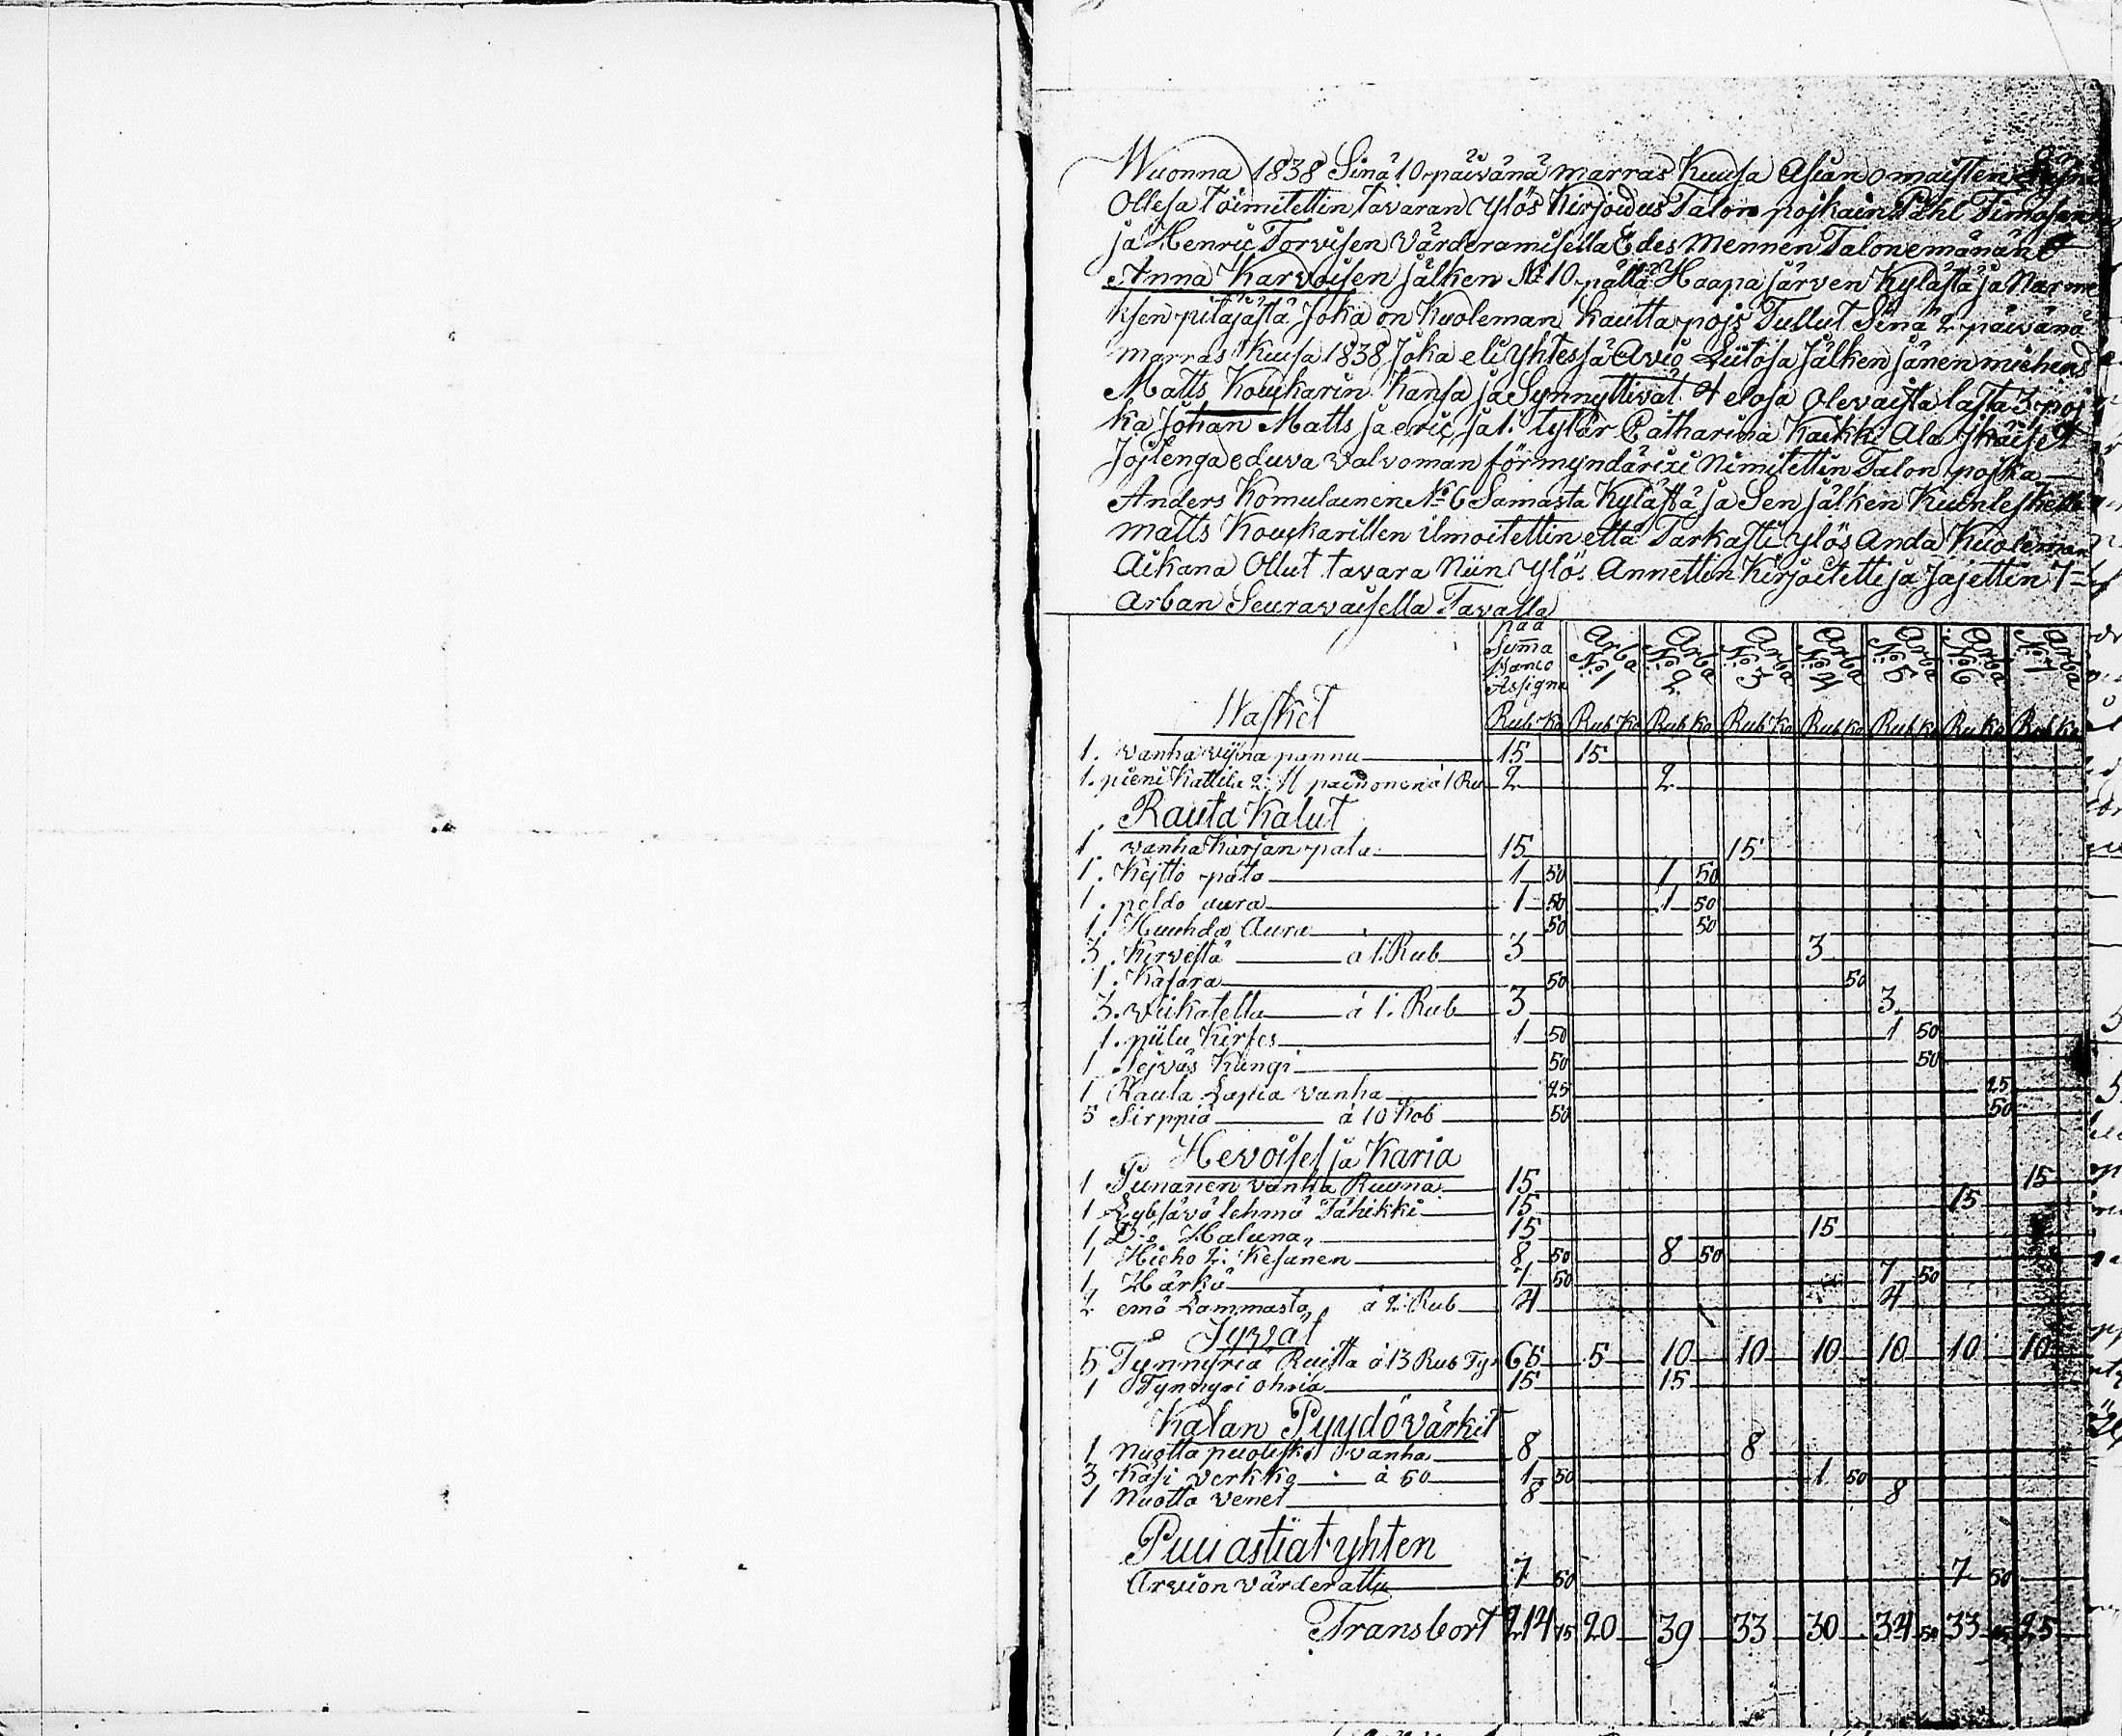 Wuonna 1838 Sinä 10 päivänä marras Kuusa Asian omaisten
Ollesa toimitettin tavaran Ylös Kirjoidus Talon pojkain Påhl Timosen
ja Henric Torvisen Värderamisella Edes Mennen Talonemänän
Anna Karvoisen jälken No 10 pältä Haapajärven Kylästä ja Nurme
ksen pitäjästä Joka on Kuoleman Kautta pojs Tullut Sinä 2 päivänä
marras Kuusa 1838 Joka eli yhtessä Avio Liitosa Jälken jänen miehens
Matts Kouckarin Kansa ja Synnyttivät 4 elosa olevaista lasta 3 poj
ka Johan Matts ja eric, ja 1: tytär Catharina Kaikki Ala Jkäiset
Jojlenga eduva valvoman förmyndärixi Nimitettin Talon pojka
Anders Komulainen No 6 Samasta Kylästä ja Sen jälken Kuin leskelle
matts Kouckarillen ilmoitettin että Tarkasti ylös Anda Kuoleman
Aikana Ollut tavara Niin Ylös Annettin Kirjoitetti ja Jajettin 7
arban Seuravaisella Tavalla
pää Summa Banco Assigna | Arba No 1 | Arba No 2 | Arba No 3 | Arba No 4 | Arba No 5 | Arba No 6 | Arba No 7
Rub Ko Rub Ko Rub Ko Rub Ko Rub Ko Rub Ko Rub Ko Rub Ko
Wasket
1. vanha vijna pannu 15 15
1. pieni Kattila 2: ℔ painonen à 1 Ru 2 2
Rauta Kalut
1. vanha Karjan pata 15 15
1. Kejtto pata 1 50 1 50
1. peldo aura 1 50 1 50
1. Huuhda Aura 50 50
3. Kirvestä à 1: Rub 3 3
1. Kasara 50 50
3. viikatetta à 1: Rub 3 3
1. piilu Kirfes 1 50 1 50
1 Sejväs Kangi 50 50
1 Rauta Lapia vanha 25 25
5 Sirppiä à 10 Kob 50 50
Hevoiset ja Karia
1 Punanen vanha Ruuna 15 15
1 Lybsävä lehmä Tähikki 15 15
1 D:o Haluna 15 15
1 Hieho 2: Kesänen 8 50 8 50
1 Härkä 7 50 7 50
2 emä Lammasta à 2: Rub 4 4
Jyvät
5 Tynnyriä Ruista à 13 Rub Tyn 65 5 10 10 10 10 10 10
1 Tynnyri ohria 15 15
Kalan Pyydövärkit
1 Nuotta puoleski vanha 8 8
3 Käsi verkko à 50 1 50 1 50
1 Nuotta venet 8 8
Puuastiat yhten
Arvion värderattu 7 50 7 50
Transbort 214 75 20 39 33 30 34 50 33 25 25